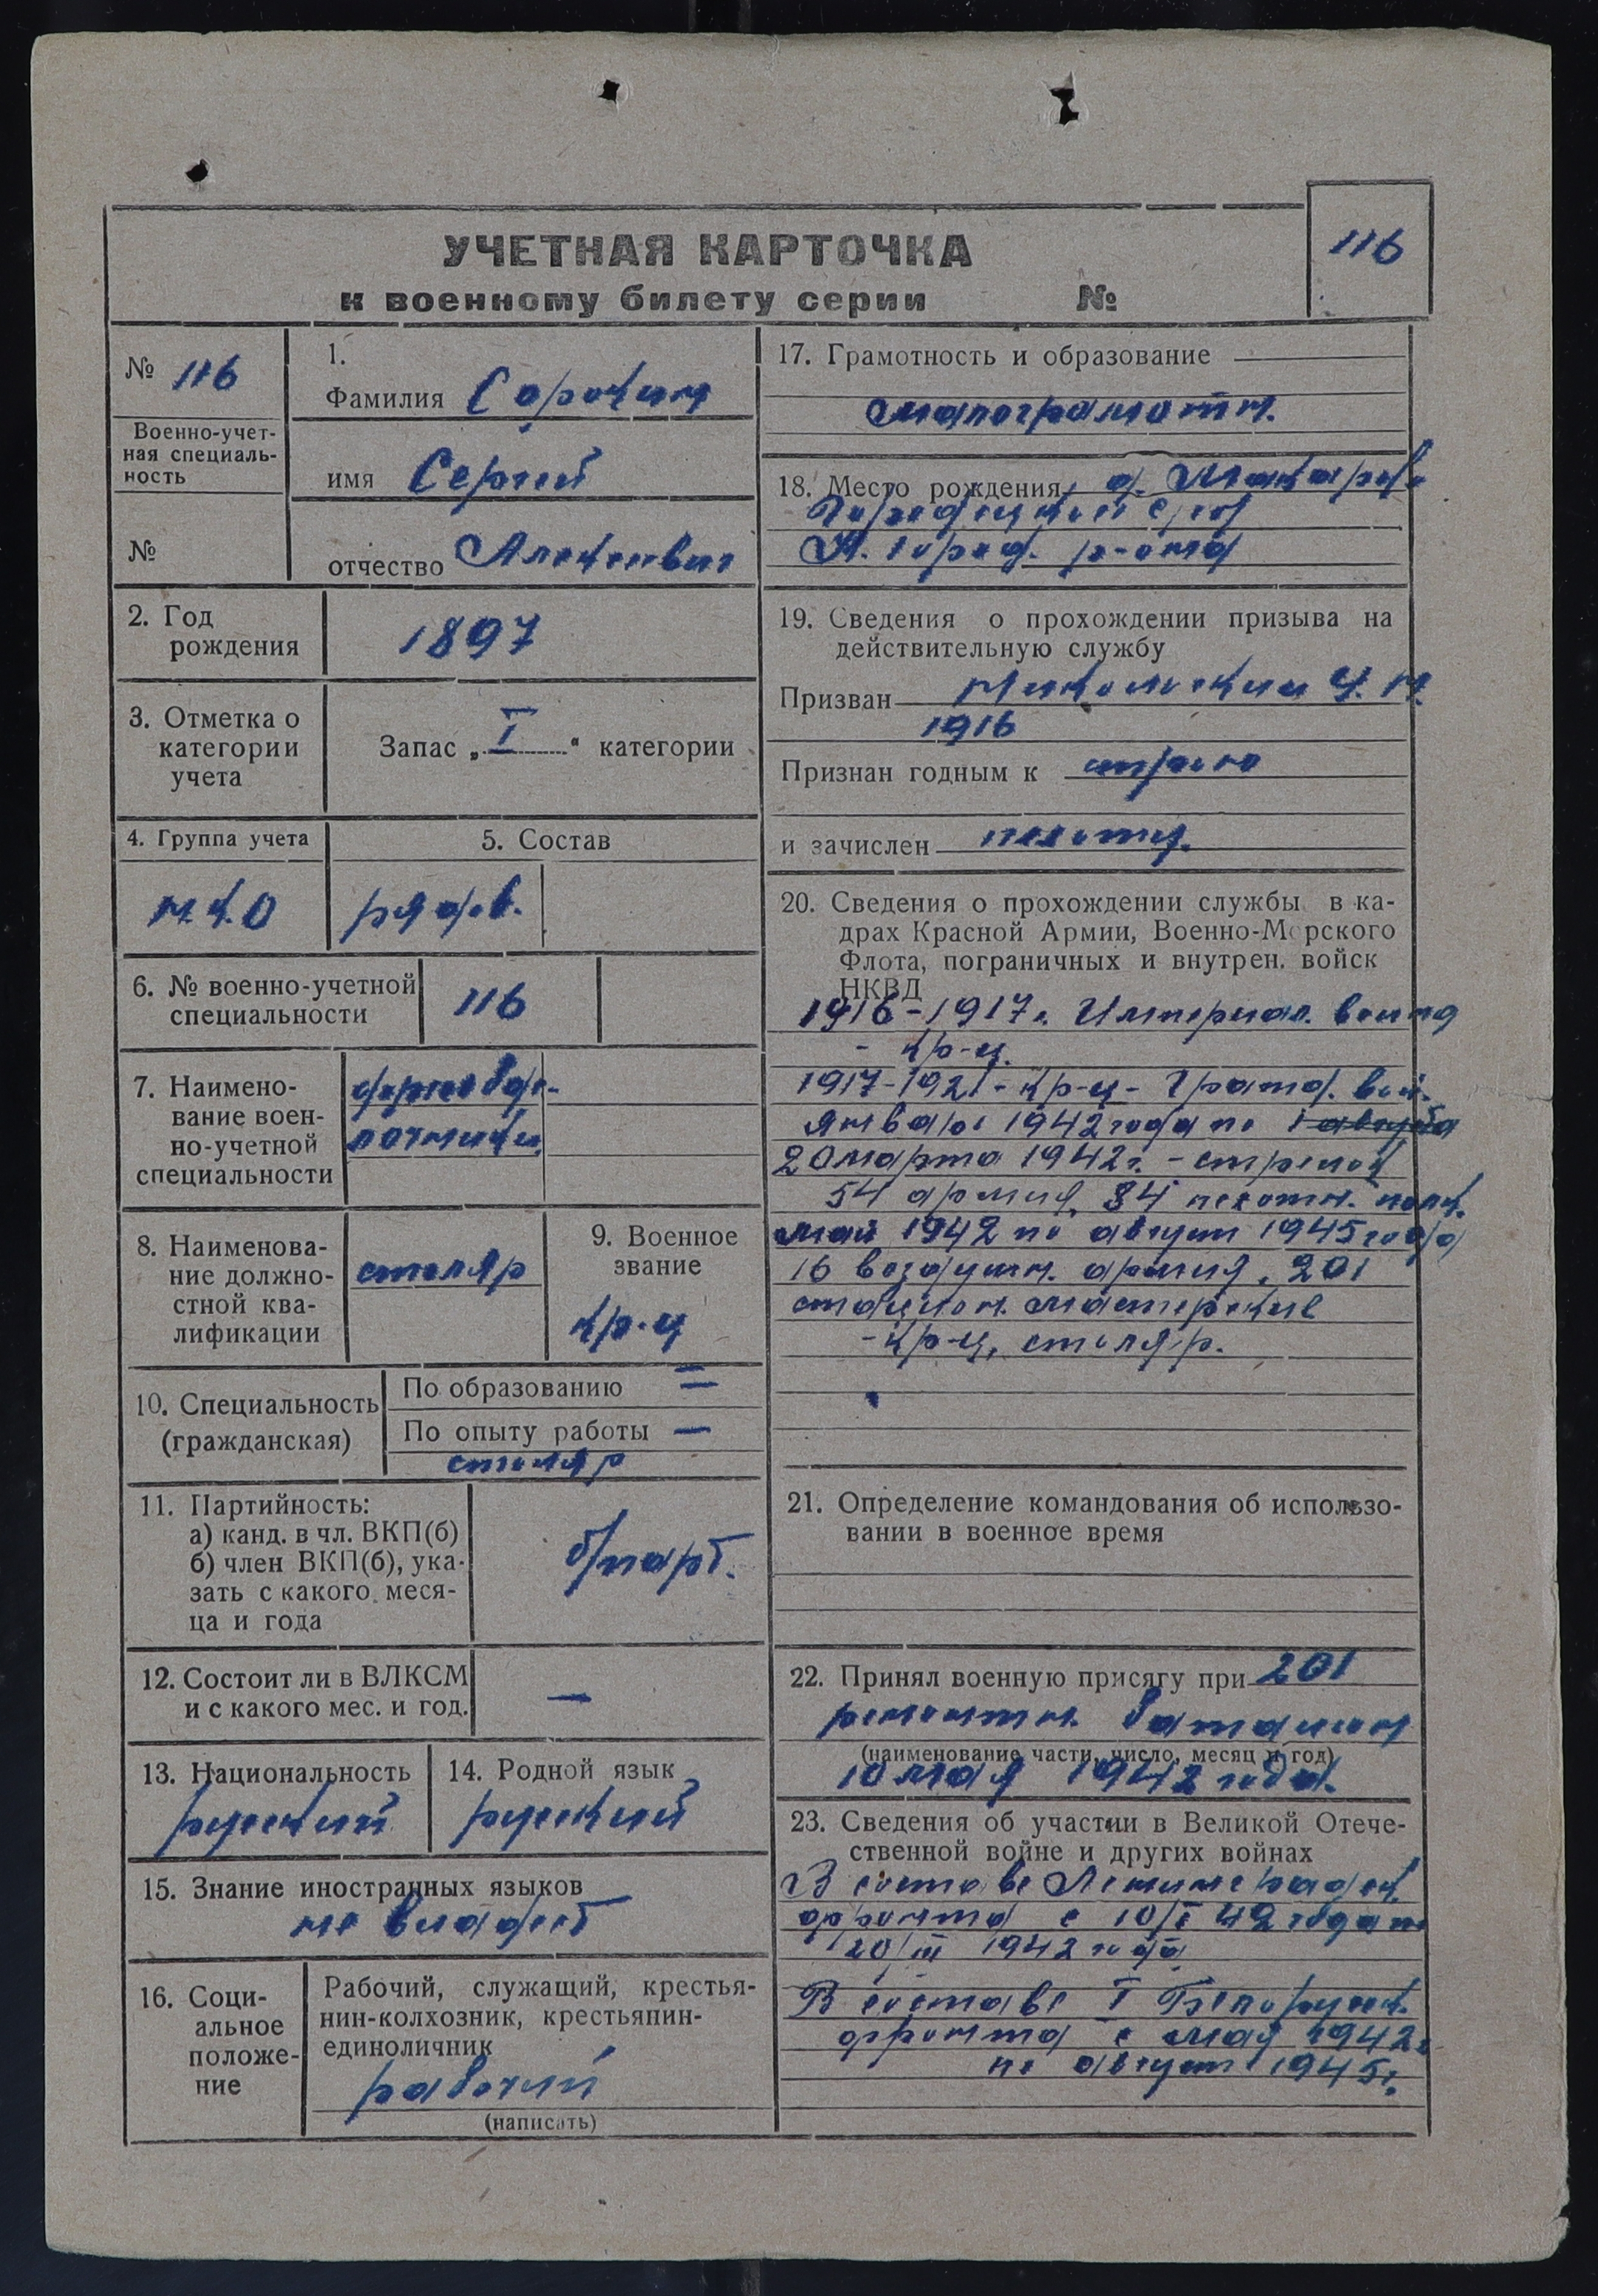 УЧЕТНАЯ КАРТОЧКА
к военному билету серии №
116
№ 116
Военно-учет-
ная специаль-
ность
№
1.
Фамилия Сорокин
имя Сергей
отчество Алексеевич
2. Год
рождения
1897
3. Отметка о
категории
учета
Запас „I“ категории
4. Группа учета
5. Состав
рядов.
6. № военно-учетной
специальности
116
7. Наимено-
вание воен-
но-учетной
специальности
8. Наименова-
ние должно-
стной ква-
лификации
столяр
9. Военное
звание
кр-ц
10. Специальность
(гражданская)
По образованию —
По опыту работы —
столяр
11. Партийность:
а) канд. в чл. ВКП(б)
б) член ВКП(б), ука-
зать с какого меся-
ца и года
б/парт.
12. Состоит ли в ВЛКСМ
и с какого мес. и год.
—
13. Национальность
русский
14. Родной язык
русский
15. Знание иностранных языков
не владеет
16. Соци-
альное
положе-
ние
Рабочий, служащий, крестья-
нин-колхозник, крестьянин-
единоличник
рабочий
(написать)
17. Грамотность и образование
малограмотн.
18. Место рождения д.
19. Сведения о прохождении призыва на
действительную службу
Призван
1916
Признан годным к строю
и зачислен пехоту.
20. Сведения о прохождении службы в ка-
драх Красной Армии, Военно-Морского
Флота, пограничных и внутрен. войск
НКВД
1916-1917г. Империал. война
- кр-ц.
1917-1921 - кр-ц - Гражд. вой.
января 1942 года по 1 августа
20 марта 1942г. - стрелок
54 армия, 84 пехотн. полк.
май 1942 по август 1945 года
16 воздушн. армия, 201
стацион. мастерские
- кр-ц, столяр.
21. Определение командования об использо-
вании в военное время
22. Принял военную присягу при 201
ремонтн. батальон
(наименование части, число, месяц и год)
10 мая 1942 года.
23. Сведения об участии в Великой Отече-
ственной войне и других войнах
В составе Ленинградск.
фронта с 10/I 42 года по
20/III 1942 года
В составе I Белорусск.
фронта с мая 1942г
по август 1945г.